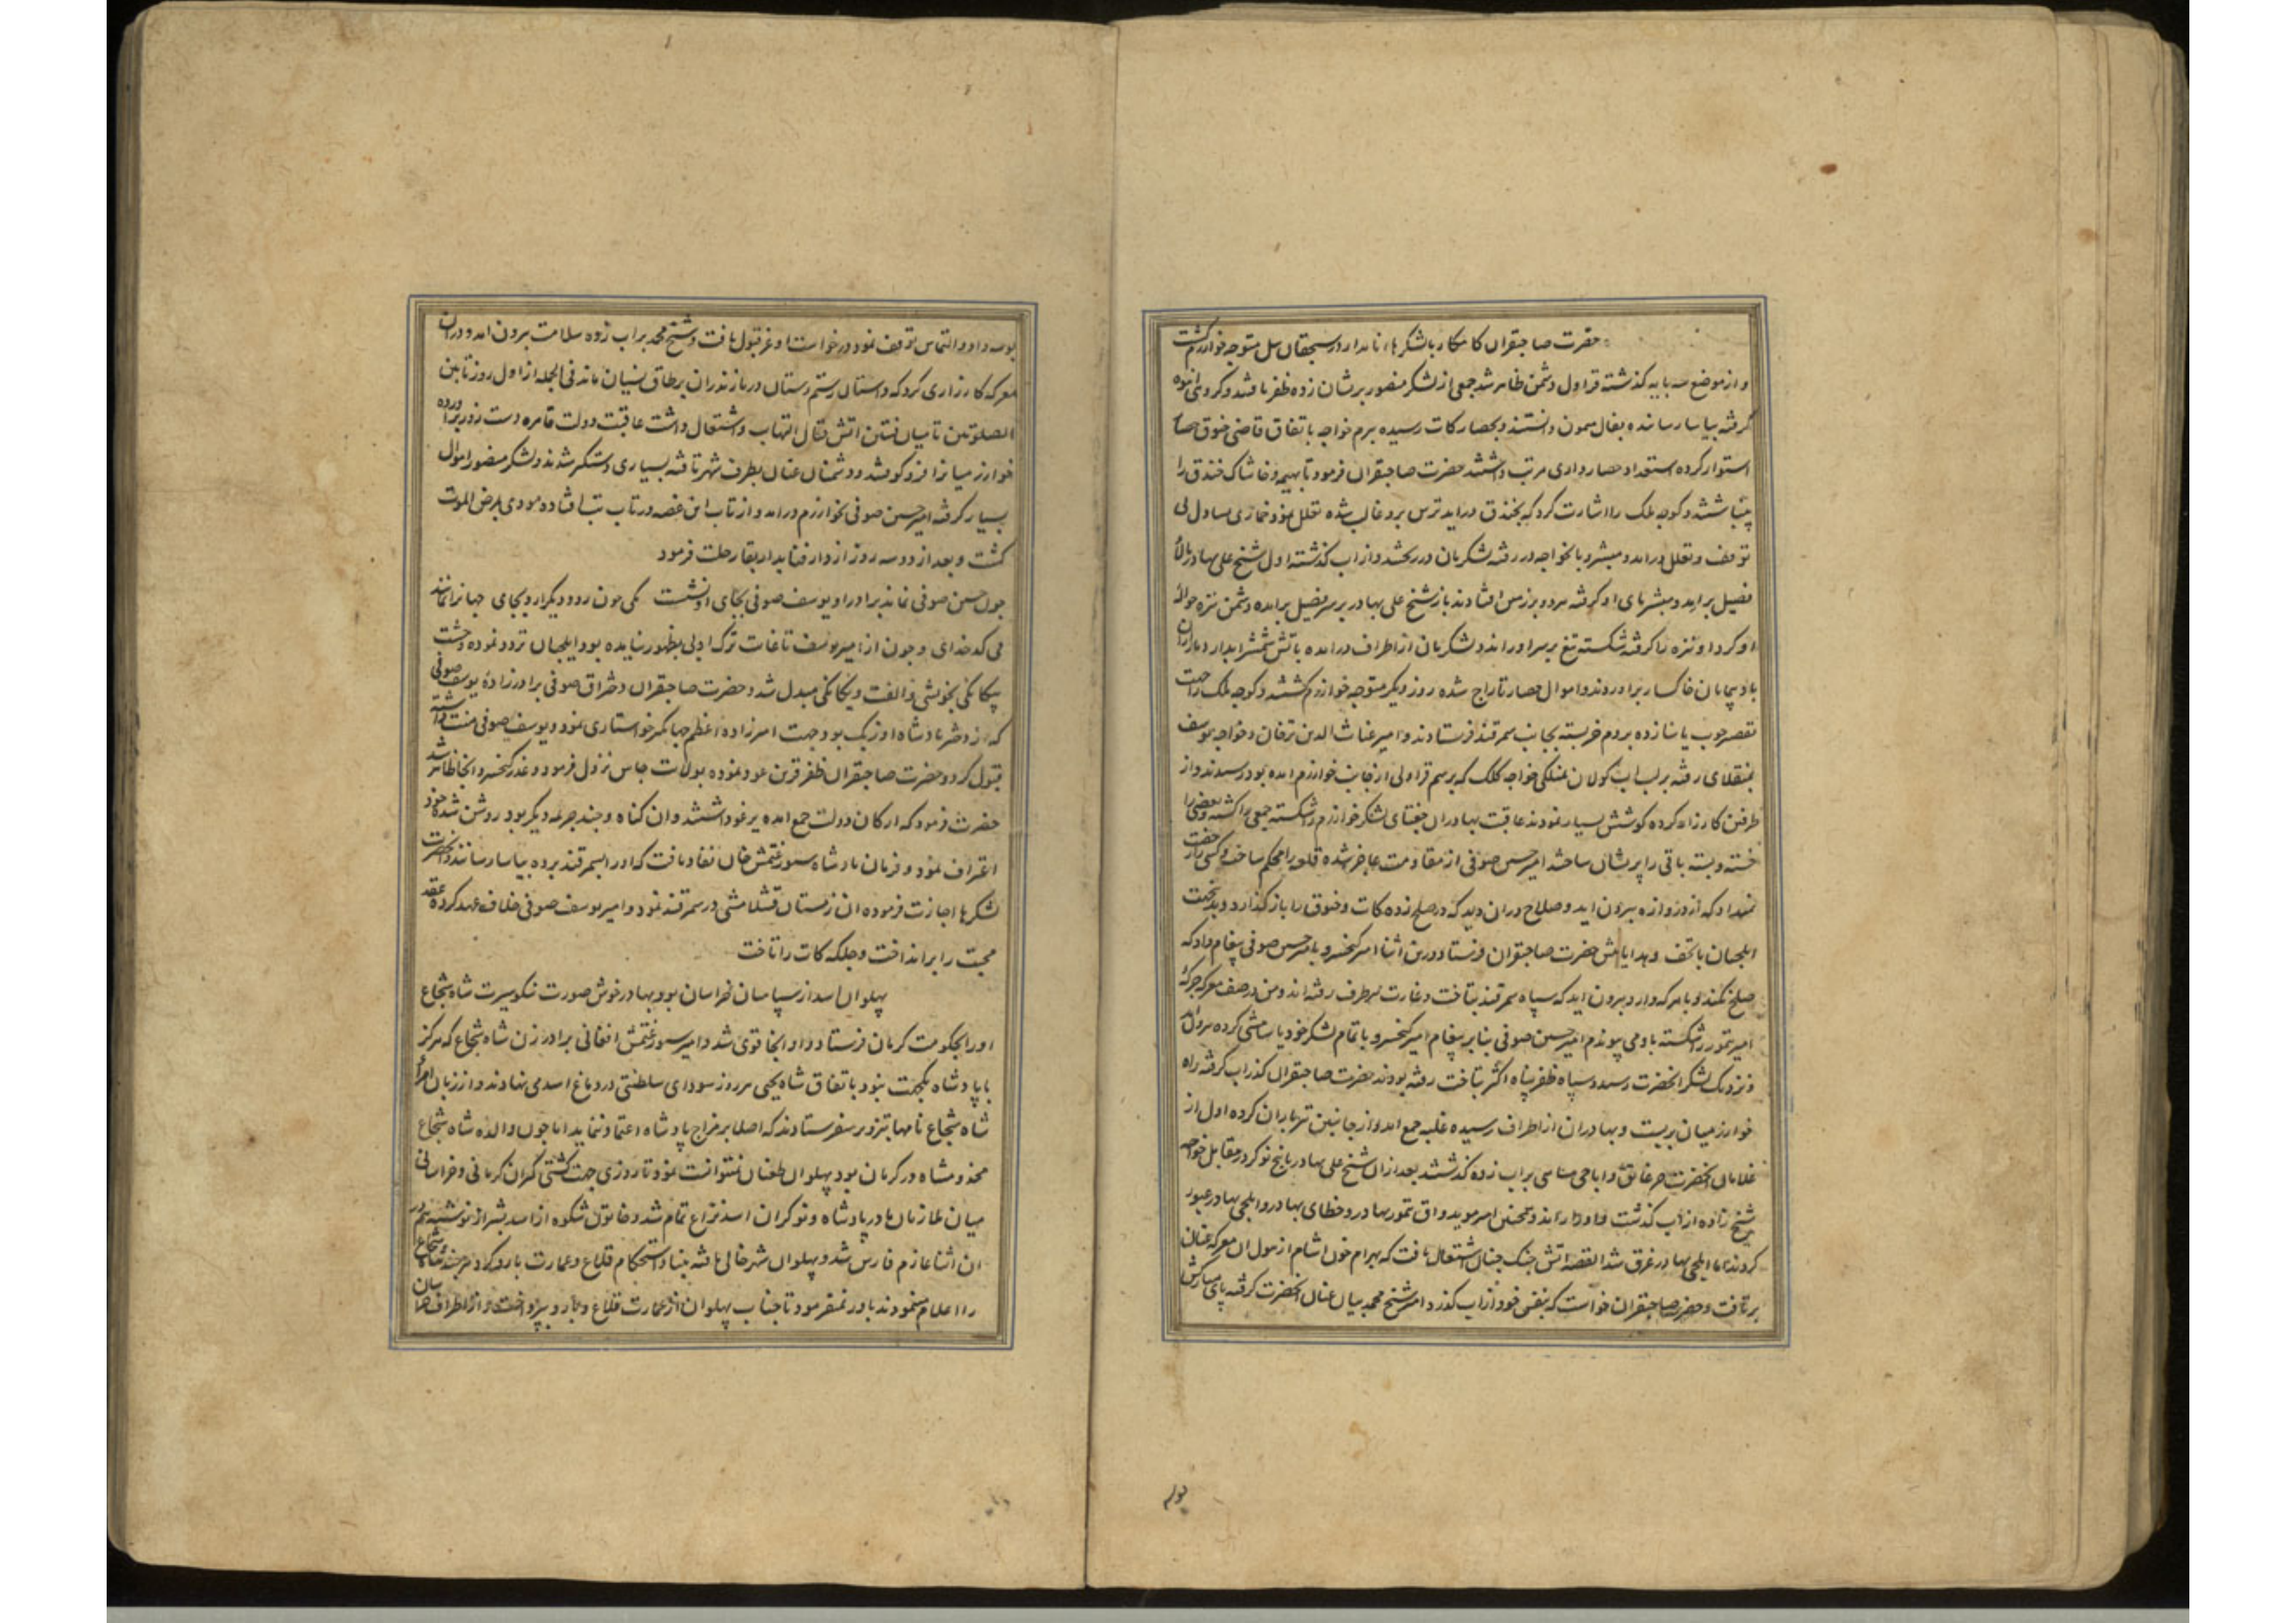 حضرت صاحبقران کامکار بالشکرهاء نامدار در سیچقان ییل متوجه خوارزم کشت
و از موضع سه پایه کذشته قراول دشمن ظاهر شد جمعی از لشکر منصور برشان زده ظفر یافتند و کروهی انبوه
کرفته بیاسا رسانده بفال میمون دانستند و بحصار کات رسیده بیرم خواجه باتفاق قاضی خیوق حصار
استوار کرده استعداد حصارداری مرتب داشتند حضرت صاحبقران فرمود تا بهیمه و خاشاک خندق را
بینباشتند و کوجه ملک را اشارت کرد که بخندق دراید ترس برو غالب شده تعلل نمود خماری یساول بی
توقف و تعلل درامد و مبشر و باخواجه در رفته لشکریان درریختند و از اب کذشته اول شیخ علی بهادر بالای
فصیل برامد و مبشر پای او کرفته هر دو بر زمین افتادند باز شیخ علی بهادر بر سر فصیل برامده دشمن نیزه حواله
او کرد او نیزه را کرفته شکسته تیغ بر سر او راند و لشکریان از اطراف درامده باتش شمشیر ابدار دمار از ان
بادپیمایان خاکسار براوردند و اموال حصار تاراج شده روز دیکر متوجه خوارزم کشتند و کوجه ملک را جهت
تقصیر چوب یاسا زده بر دم خر بسته بجانب سمرقند فرستادند و امیر غیاث الدین ترخان و خواجه یوسف
بمنقلای رفته بر لب اب کولان منکلی خواجه کلک که برسم قراولی از جانب خوارزم امده بود رسیدند و از
طرفین کارزار کرده کوشش بسیار نمودند عاقبت بهادران جغتای لشکر خوارزم را شکسته جمعی را کشته و بعضی را
خسته و بسته باقی را پریشان ساختند امیر حسین صوفی از مقاومت عاجز شده قلعه را محکم ساخت و کسی را رخصت
نمیداد که از دروازه بیرون اید و صلاح دران دید که در صلح زده کات و خیوق را باز کذارد و بدین جهت
ایلچیان با تحف و هدایا پیش حضرت صاحبقران فرستاد و درین اثنا امیر کیخسرو بامیر حسین صوفی پیغام داد که
صلح نکند و با هر که دارد بیرون اید که سپاه سمرقند بتاخت و غارت هر طرف رفته اند و من در صف معرکه جرکهٔ
امیر تمور را شکسته باو می پیوندم امیر حسین صوفی بنابر پیغام امیر کیخسرو با تمام لشکر خود یاسامشی کرده بیرون آمد
و نزدیک لشکر انحضرت رسید و سپاه ظفرپناه اکثر بتاخت رفته بودند حضرت صاحبقران کذر اب کرفته راه
خوارزمیان ببست و بهادران از اطراف رسیده غلبه جمع امد و از جانبین تیرباران کرده اول از
غلامان انحضرت و اباجی براب زده کذشتند بعد ازان شیخ علی بهادر با پنج نوکر در مقابل خواجه
شیخ زاده از اب کذشت و او را راند و همچنین امیر موید و اق تمور بهادر و خطای بهادر و ایلچی بهادر عبور
کردند اما ایلچی بهادر غرق شد القصه اتش جنک چنان اشتعال یافت که بهرام خون اشام از هول ان معرکه عنان
برتافت و حضرت صاحبقران خواست که بنفس خود از اب کذرد امیر شیخ محمد بیان عنان انحضرت کرفته پای مبارکش
بوسه
بوسه داد و التماس توقف نمود درخواست او عز قبول یافت و شیخ محمد بر اب زده سلامت بیرون امد و دران
معرکه کارزاری کرد که داستان رستم دستان در مازندران بر طاق نسیان ماند فی الجمله از اول روز تا بین
الصلوتین تا میان فئتین اتش قتال التهاب و اشتعال داشت عاقبت دولت قاهره دست زور براورده
خوارزمیانرا فرو کوفتند و دشمنان عنان بطرف شهر تافته بسیاری دستکیر شدند و لشکر منصور اموال
بسیار کرفته امیر حسین صوفی بخوارزم درامد و از تاب این غصه در تاب تب افتاده مودی بمرض الموت
کشت و بعد از دو سه روز از دار فنا بدار بقا رحلت فرمود
چون حسین صوفی نماند برادر او یوسف صوفی بجای او نشست یکی چون رود دیکر اید بجای جهانرا نمانند
بی کدخدای و چون از امیر یوسف تا غایت ترک ادبی بظهور نیامده بود ایلچیان تردد نموده وحشت
بیکانکی بخویشی و الفت و یکانکی مبدل شد و حضرت صاحبقران دختر اق صوفی برادرزادهٔ یوسف صوفی
که از دختر پادشاه اوزبک بود جهت امیرزاده اعظم جهانکیر خواستاری نمود و یوسف صوفی منت داشته
قبول کرد و حضرت صاحبقران ظفرقرین عود نموده بولایت خاص نزول فرمود و غدر کیخسرو انجا ظاهر شد
حضرت فرمود که ارکان دولت جمع امده یرغو داشتند و ان کناه و چند جریمه دیکر بود روشن شده خود
اعتراف نمود و فرمان پادشاه سیورغتمش خان نفاد یافت که او را بسمرقند برده بیاسا رسانند و انحضرت
لشکرها اجازت فرموده ان زمستان قشلامشی در سمرقند نمود و امیر یوسف صوفی خلاف عهد کرده عقد
محبت را برانداخت و جلکه کات را تاخت
پهلوان اسد از سپاهیان خراسان بود بهادر خوش صورت نیکو سیرت شاه شجاع
او را بحکومت کرمان فرستاد و او انجا قوی شد و امیر سیورغتمش افغانی برادر زن شاه شجاع که هرکز
با پادشاه یکجهت نبود باتفاق شاه یحیی هر روز سودای سلطنتی در دماغ اسد می نهادند و از زبان امراء
شاه شجاع نامها بتزویر می فرستادند که اصلا بر مزاج پادشاه اعتماد ننماید اما چون والده شاه شجاع
مخدومشاه در کرمان بود پهلوان طغیان نمیتوانست نمود تا روزی جهت کشتی کیران کرمانی و خراسانی
میان ملازمان مادر پادشاه و نوکران اسد نزاع تمام شد و خاتون شکوه از اسد بشیراز نوشته هم در
ان اثنا عازم فارس شد و پهلوان شهر خالی یافته بنیاد استحکام قلاع و عمارت بارو کرد هر چند شاه شجاع
را اعلام مینمودند باور نمیفرمود تا جناب پهلوان از عمارت قلاع و بارو بپرداخت و از اطراف سپاهیان